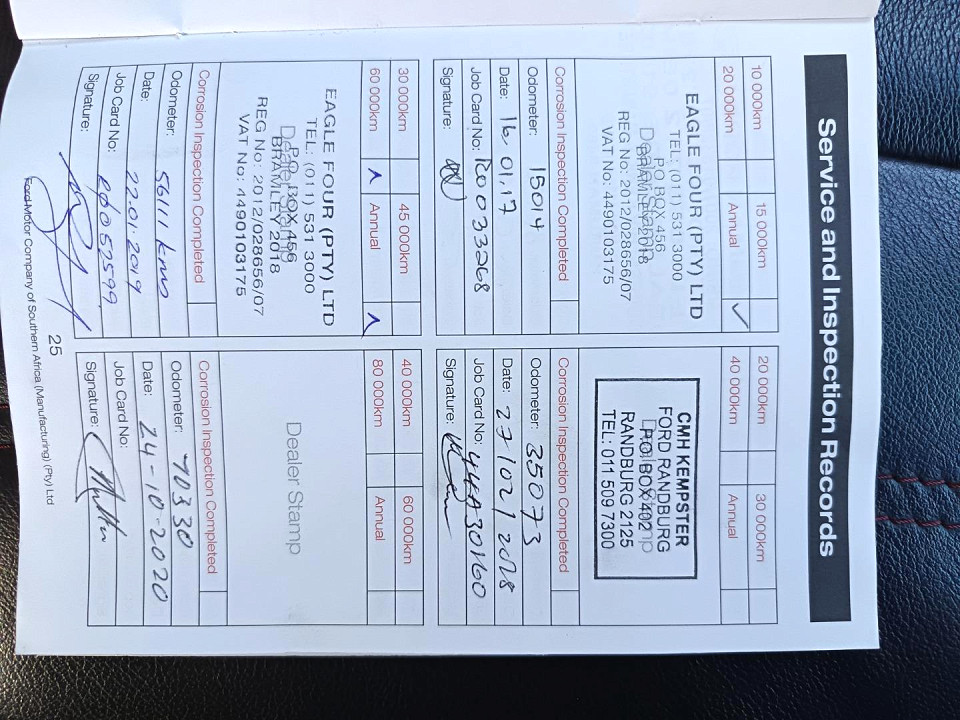 Service and Inspection Records
10 000km 15 000km
20 000km Annual ✓
EAGLE FOUR (PTY) LTD
TEL: (011) 531 3000
P O BOX 456
Dealer Stamp
BRAMLEY 2018
REG No: 2012/028656/07
VAT No: 4490103175
Corrosion Inspection Completed
Odometer: 15014
Date: 16.01.17
Job Card No: R0033268
Signature:
20 000km 30 000km
40 000km Annual
CMH KEMPSTER
FORD RANDBURG
P.O. BOX 492
Dealer Stamp
RANDBURG 2125
TEL: 011 509 7300
Corrosion Inspection Completed
Odometer: 35073
Date: 27/02/2018
Job Card No:
Signature:
30 000km 45 000km
60 000km Annual
EAGLE FOUR (PTY) LTD
TEL: (011) 531 3000
P.O. BOX 456
Dealer Stamp
BRAMLEY 2018
REG No: 2012/028656/07
VAT No: 4490103175
Corrosion Inspection Completed
Odometer: 56111 kms
Date: 22.01.2019
Job Card No:
Signature:
40 000km 60 000km
80 000km Annual
Dealer Stamp
Corrosion Inspection Completed
Odometer: 70330
Date: 24-10-2020
Job Card No:
Signature:
25
Ford Motor Company of Southern Africa (Manufacturing) (Pty) Ltd